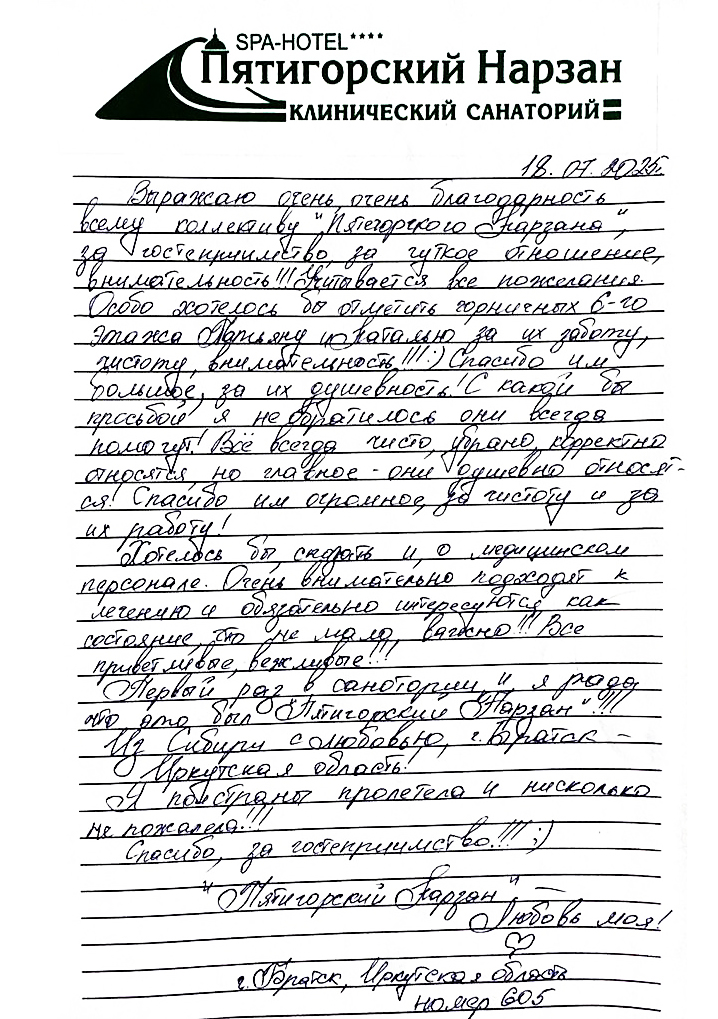 SPA-HOTEL****
Пятигорский Нарзан
КЛИНИЧЕСКИЙ САНАТОРИЙ
18.07.2025г.
Выражаю очень, очень благодарность
всему коллективу "Пятегорского Нарзана",
за гостеприимство, за чуткое отношение,
внимательность!!! Учитывается все пожелания.
Особо хотелось бы отметить горничных 6-го
этажа Татьяну и Наталью за их заботу,
чистоту, внимательность!!! :) Спасибо им
большое, за их душевность! С какой бы
просьбой я не обратилось они всегда
помогут! Всё всегда чисто, убрано, корректно
относятся, но главное - они душевно относят-
ся! Спасибо им огромное, за чистоту и за
их работу!
Хотелось бы, сказать и, о медицинском
персонале. Очень внимательно подходят к
лечению и обязательно интересуются как
состояние, что не мало, важно!!! Все
приветливые, вежливые!!!
Первый раз в санотории и, я рада
что, это был "Пятигорский Нарзан"!!!
Из Сибири с любовью, г. Братск -
Иркутская область!
Я полстраны пролетела и нисколько
не пожалела!!!
Спасибо, за гостеприимство!!! ;)
"Пятигорский Нарзан" -
Любовь моя!
г. Братск, Иркутская область
номер 605